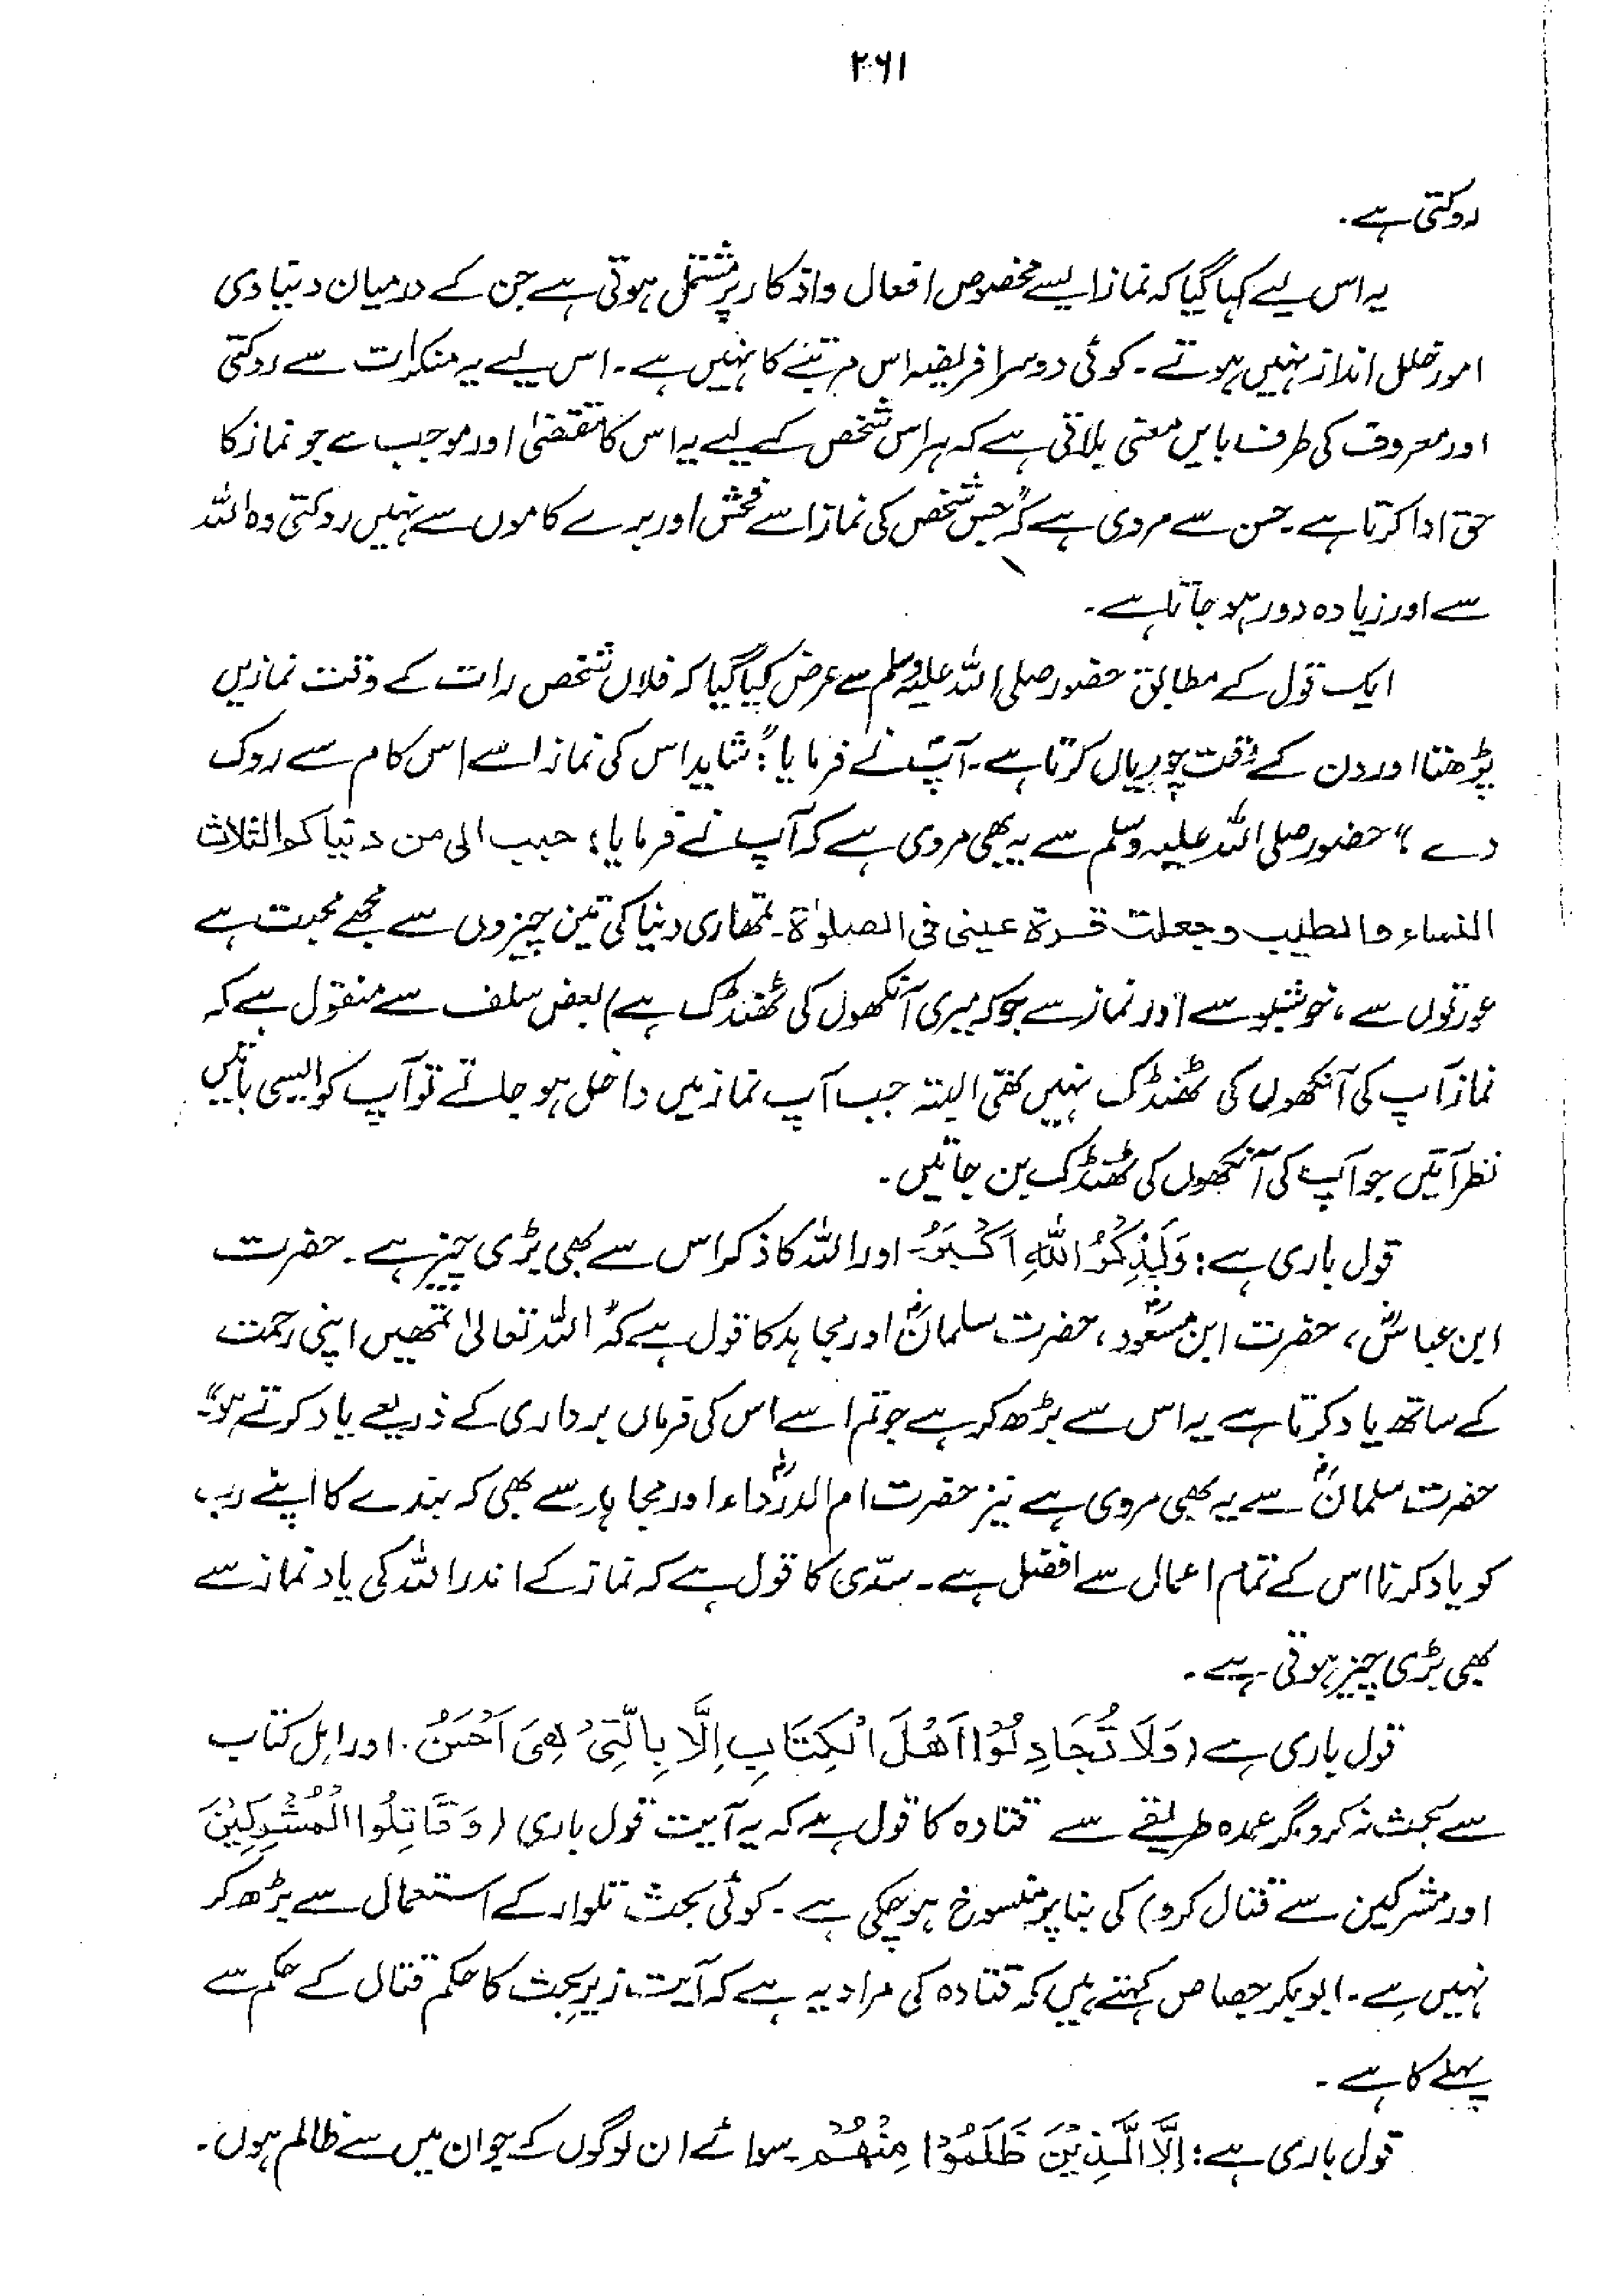 ۲۶۱
روکتی ہے۔
یہ اس لیے کہا گیا کہ نماز ایسے مخصوص افعال واذکار پر مشتمل ہوتی ہے جن کے درمیان دنیاوی
امور خلل انداز نہیں ہوتے۔ کوئی دوسرا فریضہ اس مرتبے کا نہیں ہے۔ اس لیے یہ منکرات سے روکتی
اور معروف کی طرف بایں معنی بلاتی ہے کہ ہر اس شخص کے لیے یہ اس کا مقتضیٰ اور موجب ہے جو نماز کا
حق ادا کرتا ہے۔ حسن سے مروی ہے کہ "جس شخص کی نماز اسے فحش اور برے کاموں سے نہیں روکتی وہ اللہ
سے اور زیادہ دور ہو جاتا ہے۔
ایک قول کے مطابق حضور صلی اللہ علیہ وسلم سے عرض کیا گیا کہ فلاں شخص رات کے وقت نمازیں
پڑھتا اور دن کے وقت چوریاں کرتا ہے۔ آپؐ نے فرمایا: "شاید اس کی نماز اسے اس کام سے روک
دے" حضور صلی اللہ علیہ وسلم سے یہ بھی مروی ہے کہ آپ نے فرمایا؛ حبب الی من دنیاکو الثلاث
النساء والطیب وجعلت قرۃ عینی فی الصلوٰۃ۔ تمھاری دنیا کی تین چیزوں سے مجھے محبت ہے
عورتوں سے، خوشبو سے اور نماز سے جو کہ میری آنکھوں کی ٹھنڈک ہے) بعض سلف سے منقول ہے کہ
نماز آپ کی آنکھوں کی ٹھنڈک نہیں تھی البتہ جب آپ نماز میں داخل ہو جاتے تو آپ کو ایسی باتیں
نظر آتیں جو آپ کی آنکھوں کی ٹھنڈک بن جاتیں۔
قول باری ہے: وَلَذِكْرُ اللّٰهِ اَكْبَرُ۔ اور اللہ کا ذکر اس سے بھی بڑی چیز ہے۔ حضرت
ابن عباسؓ، حضرت ابن مسعودؓ، حضرت سلمانؓ اور مجاہد کا قول ہے کہ "اللہ تعالیٰ تمھیں اپنی رحمت
کے ساتھ یاد کرتا ہے یہ اس سے بڑھ کر ہے جو تم اسے اس کی فرماں برداری کے ذریعے یاد کرتے ہو"۔
حضرت سلمانؓ سے یہ بھی مروی ہے نیز حضرت ام الدرداءؓ اور مجاہد سے بھی کہ بندے کا اپنے رب
کو یاد کرنا اس کے تمام اعمال سے افضل ہے۔ سدّی کا قول ہے کہ نماز کے اندر اللہ کی یاد نماز سے
بھی بڑی چیز ہوتی ہے۔
قول باری ہے (وَلَا تُجَادِلُوْا اَهْلَ الْكِتَابِ اِلَّا بِالَّتِیْ هِیَ اَحْسَنُ۔ اور اہل کتاب
سے بحث نہ کرو مگر عمدہ طریقے سے قتادہ کا قول ہے کہ یہ آیت قول باری (وَقَاتِلُوا الْمُشْرِكِيْنَ
اور مشرکین سے قتال کرو) کی بنا پر منسوخ ہو چکی ہے۔ کوئی بحث تلوار کے استعمال سے بڑھ کر
نہیں ہے۔ ابوبکر جصاص کہتے ہیں کہ قتادہ کی مراد یہ ہے کہ آیت زیر بحث کا حکم قتال کے حکم سے
پہلے کا ہے۔
قول باری ہے: اِلَّا الَّذِيْنَ ظَلَمُوْا مِنْهُمْ۔ سوائے ان لوگوں کے جو ان میں سے ظالم ہوں۔